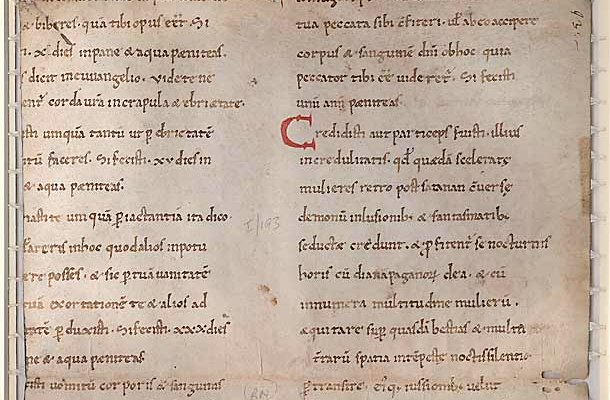 & biberes. qua tibi opus eēt. Si
. x dies in pane & aqua pęniteas.
s dicit in euuangelio. Videte ne
entᷣ corda urā in crapula & ebrietate.
isti umquā tantū ut p̄ ebrietatē
itū faceres. Si fecisti. xv dies in
& aqua pęniteas.
iactasti umquā p̄ iactantiā ita dico.
sareris in hoc quod alios in potu
ere posses. & sic p̄ tuā uanitatē
tuā exortationē te & alios ad
tatē p̄duxisti. Si fecisti. xxx dies
ne & aqua pęniteas
isti uomitū corporis & sanguinis
tua peccata sibi c̄fiteri. ul' ab eo accipere
corpus & sanguinem dn̄i ob hoc quia
peccator tibi eē uideretᷣ. Si fecisti
unū annū pęniteas.
Credidisti aut particeps fuisti. illius
incredulitatis. qd' quędā sceleratę
mulieres retro post satanan c̄uersę
demonū inlusionib; & fantasmatib;
seductę credunt. & p̄fitentᷣ se nocturnis
horis cū diana paganoꝝ dea. & cū
innumera multitudine mulierū.
ęquitare sup̄ quasdā bestias & multa
t̄rarū spatia intēpestę noctis silentio
p̄transire. ei'q; iussionib; uelut
I/193